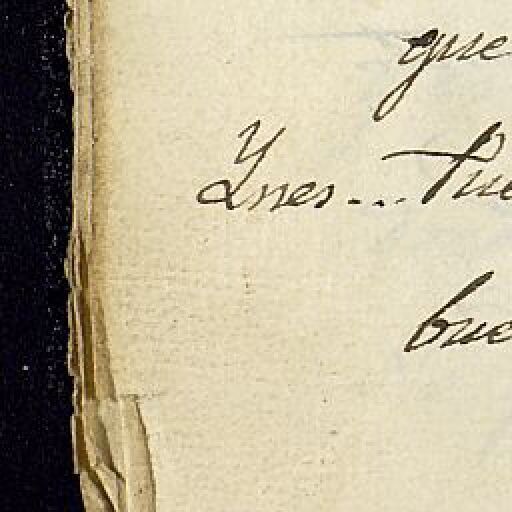 que
Ynes... Pue
bue